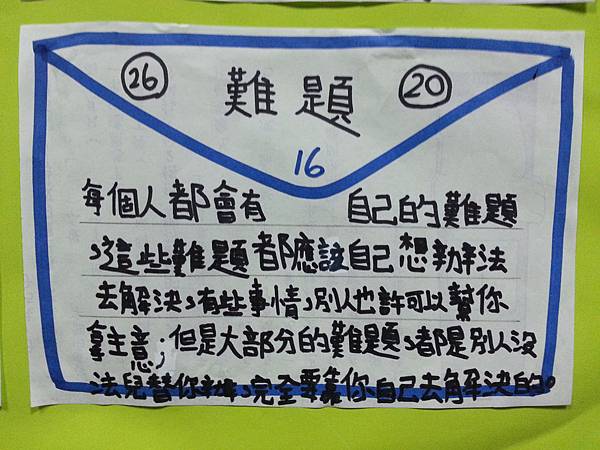 26 難題 20
16
每個人都會有 自己的難題
,這些難題都應該自己想辦法
去解決,有些事情,別人也許可以幫你
拿主意;但是大部分的難題,都是別人沒
法兒替你辦,完全要靠你自己去解決的。